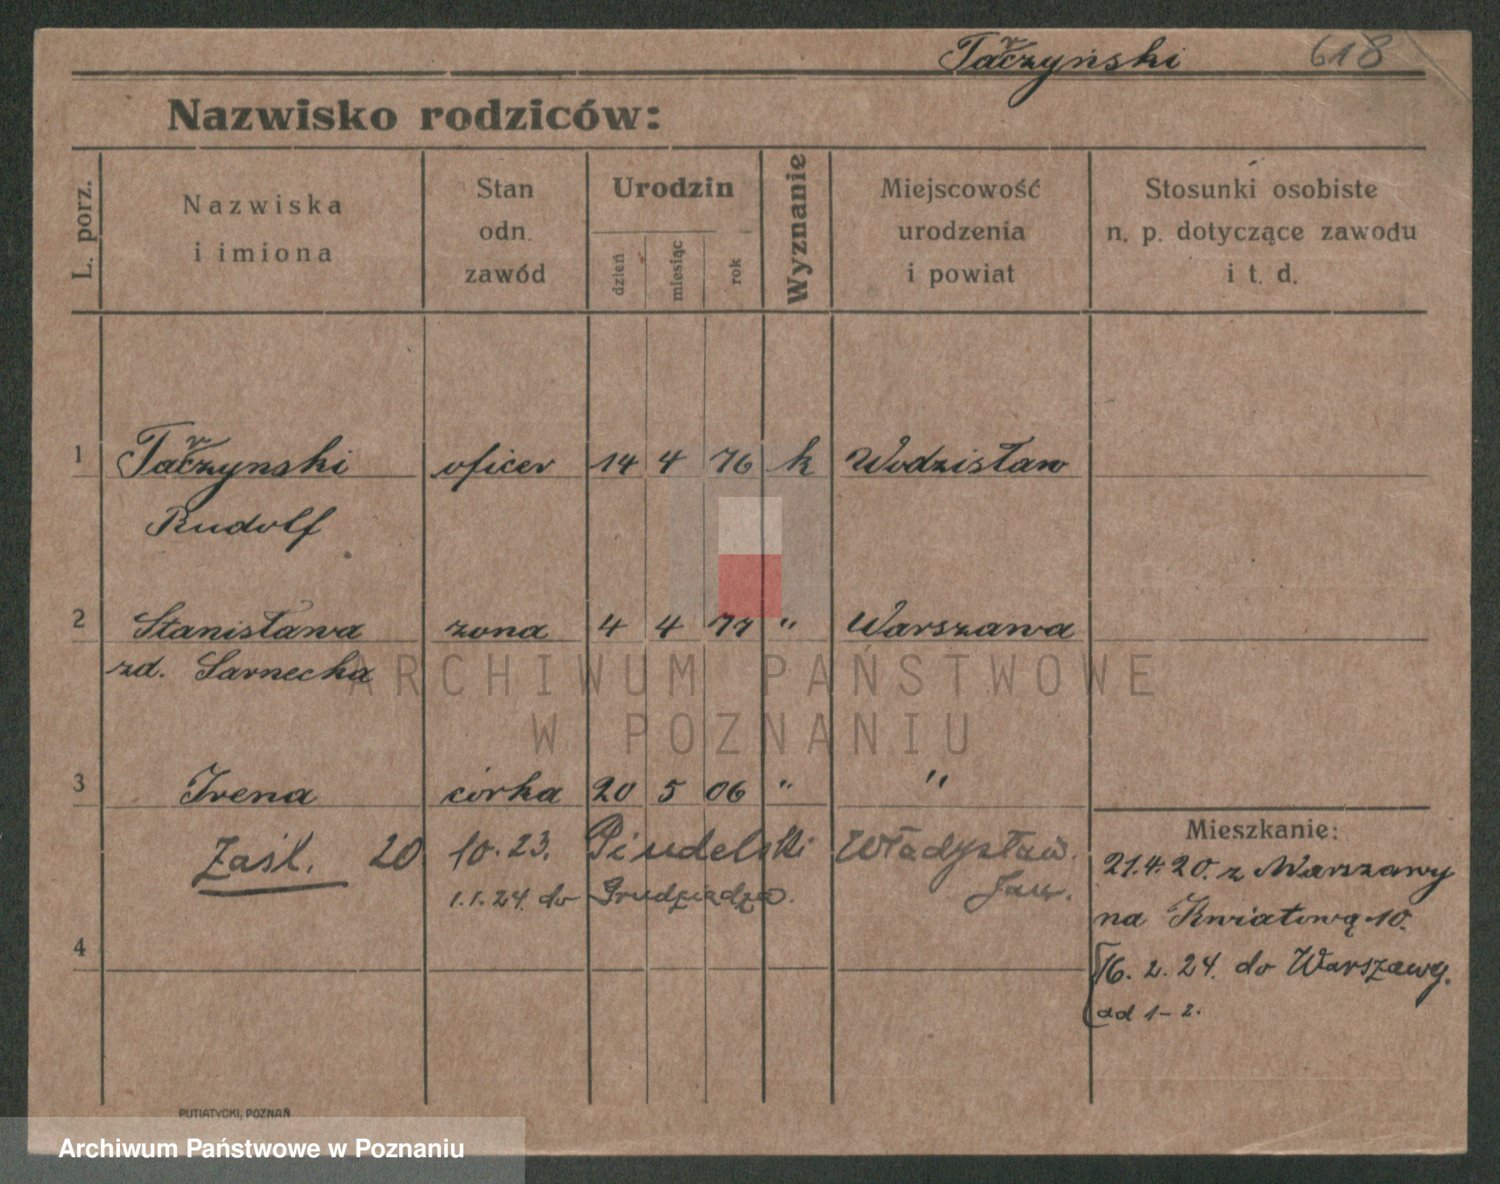 Taczyński 618
Nazwisko rodziców:
L. porz.
Nazwiska
i imiona
Stan
odn.
zawód
Urodzin
dzień
miesiąc
rok
Wyznanie
Miejscowość
urodzenia
i powiat
Stosunki osobiste
n. p. dotyczące zawodu
i t. d.
1 Taczynski oficer 14 4 76 k Wodzisław
Rudolf
2 Stanisława zona 4 4 77 " Warszawa
zd. Sarnecka
ARCHIWUM PAŃSTWOWE
W POZNANIU
3 Irena córka 20 5 06 " "
Zaśl. 20 10.23. Władysław.
1.1.24. do Grudziądza. Jan.
4
Mieszkanie:
21.4.20. z Warszawy
na Kwiatową 10.
16.2.24. do Warszawy.
ad 1-2.
PUTIATYCKI, POZNAŃ
Archiwum Państwowe w Poznaniu